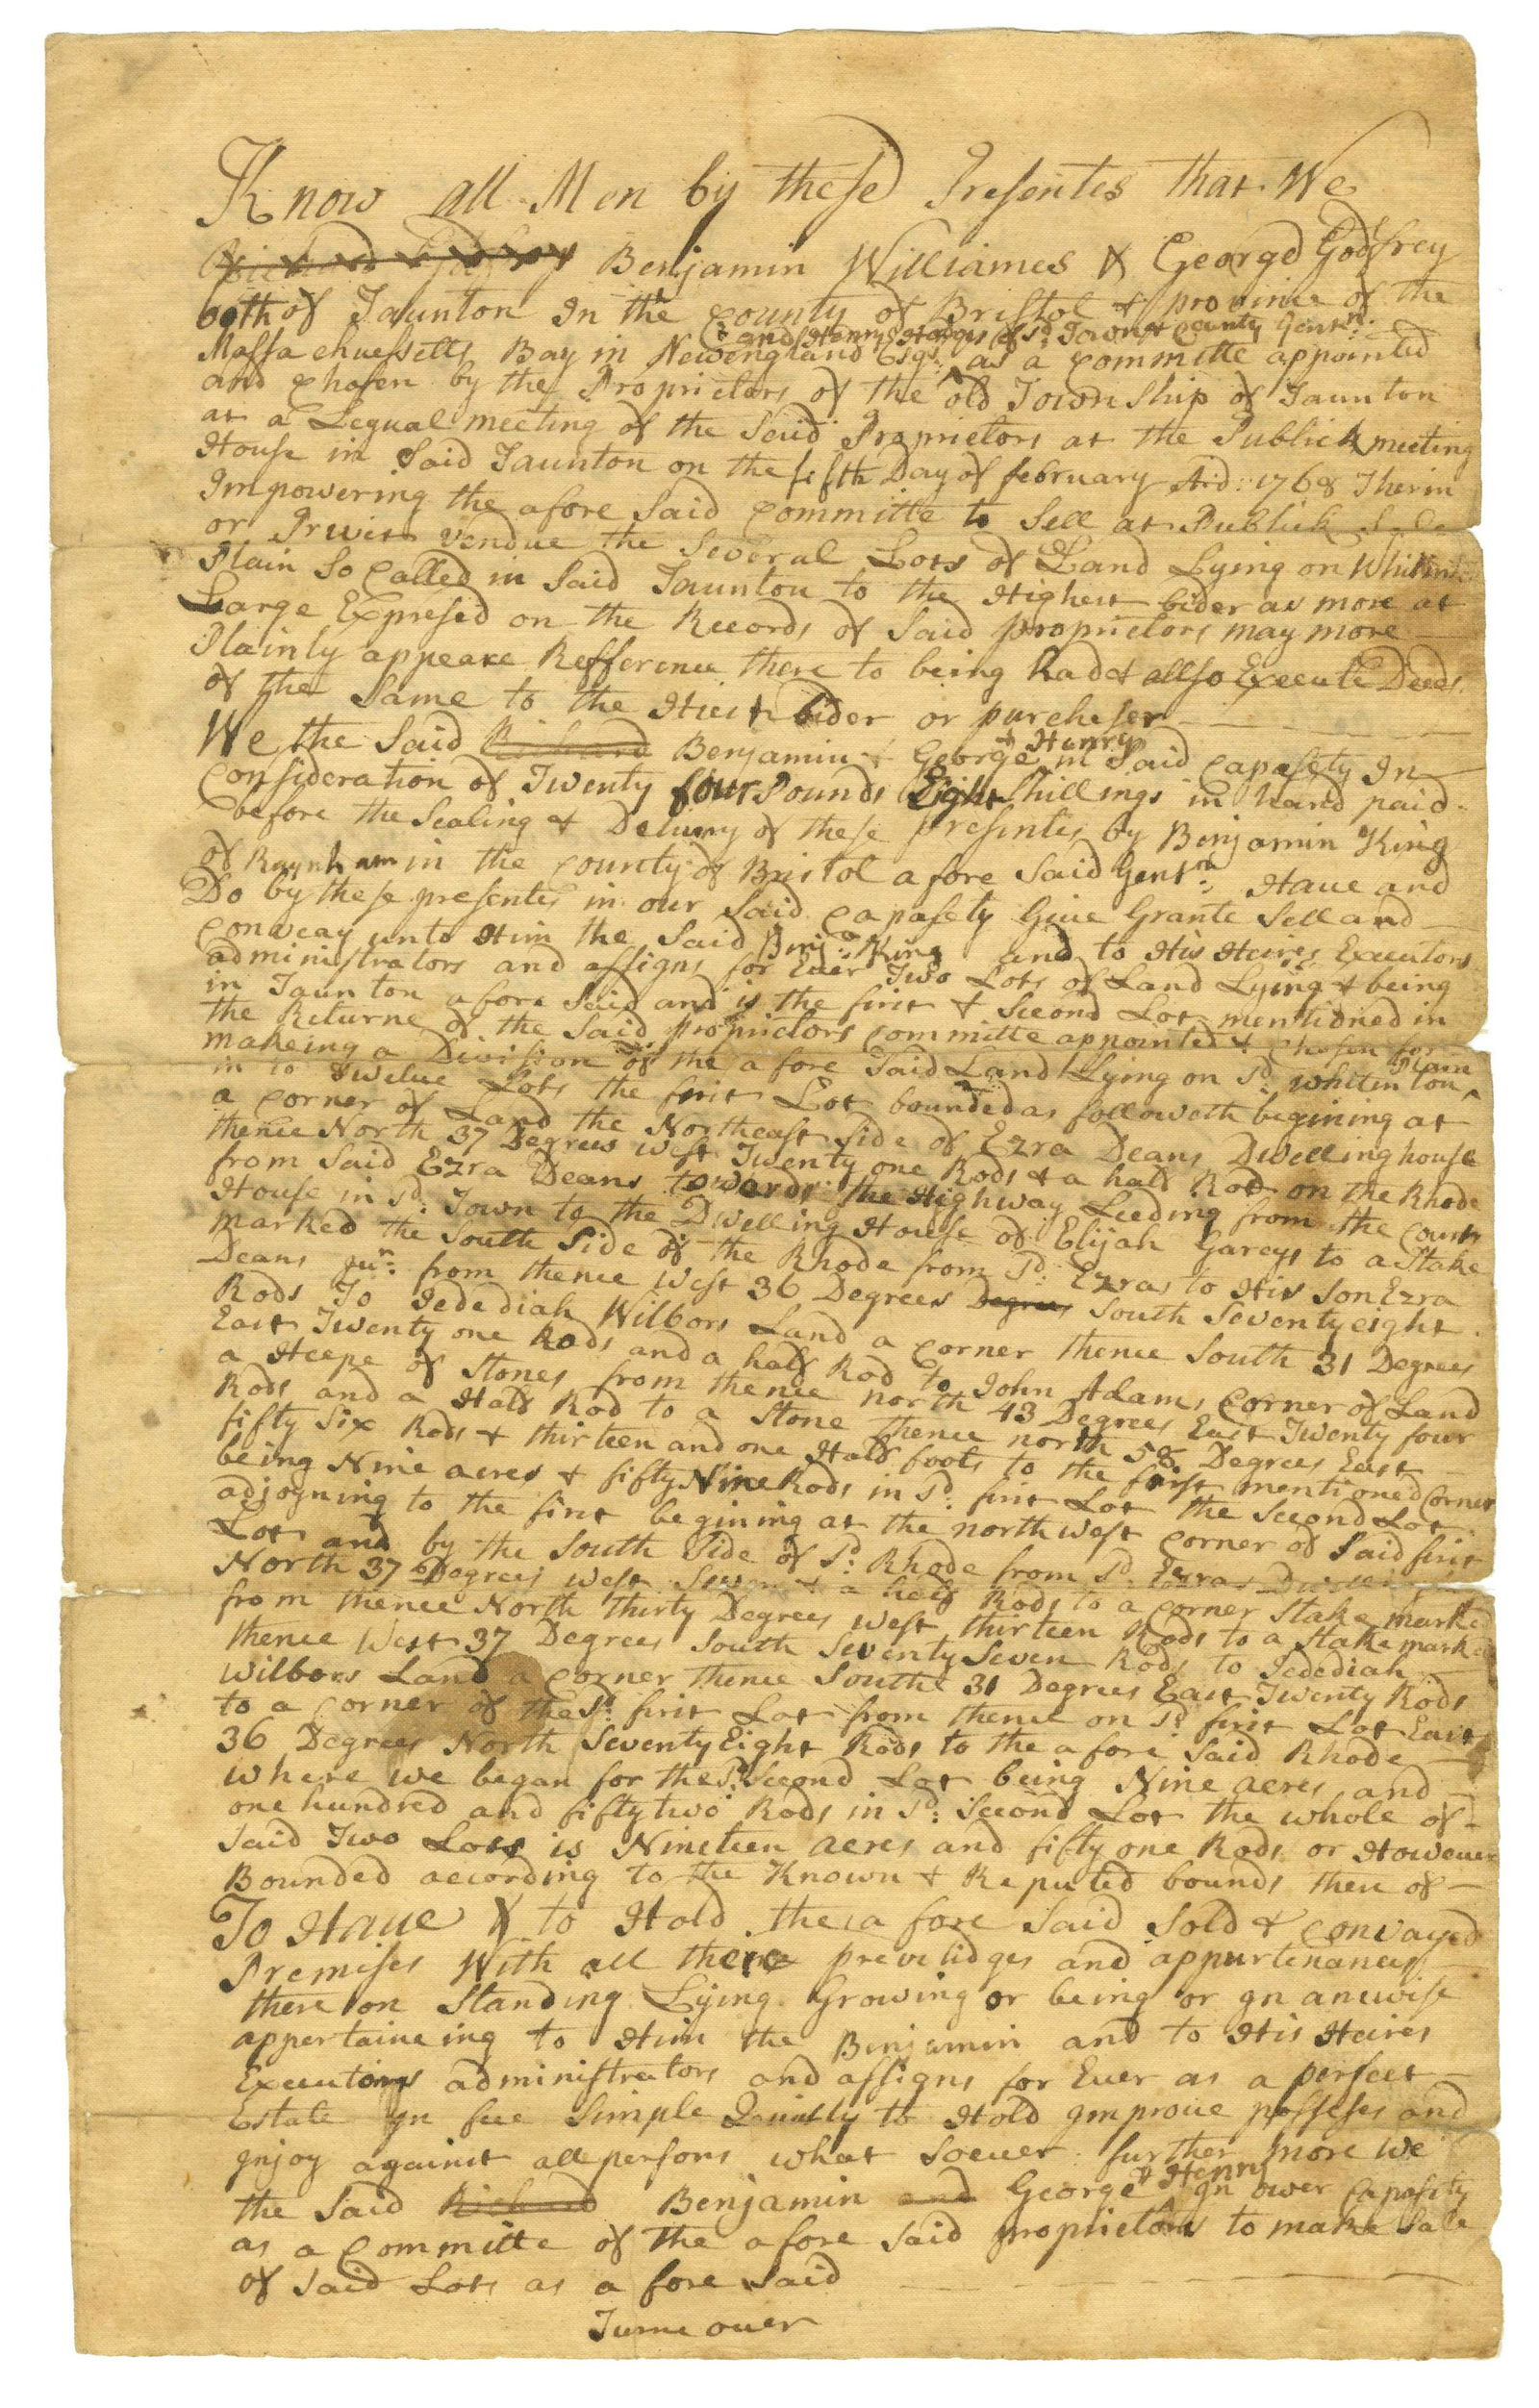 Know all Men by these Presentes that We
Richard Godfrey Benjamin Williames & George Godfrey
both of Taunton In the County of Bristol & province of the
and Henry Hodges of sd: Town & County Gentn:
Massachuessetts Bay in Newengland Esqs: as a Committe appointed
and Chosen by the Proprietors of the old Town Ship of Taunton
at a Lequal meeting of the Said Proprietors at the Publick meeting
House in Said Taunton on the fifth Day of february A:D: 1768 Therin
Impowering the afore Said Committe to Sell at Publick Sale
or Privet Vendue the Several Lots of Land Lying on
Plain So Called in Said Taunton to the Highest bider as more at
Large Expresed on the Records of Said proprietors may more
Plainly appeare Refference there to being had & allso Execute Deeds
of the Same to the Hiest bider or purcheser
& Henry
We the Said Richard Benjamin & George in Said Capasety In
Consideration of Twenty four Pounds Eight Shillings in hand paid
before the Sealing & Delivery of these presentes by Benjamin King
of Raynham in the County of Bristol afore Said Gentn: Haue and
Do by these presentes in our Said Capasety Giue Grante Sell and
Conveay unto Him the Said Benja: King and to His Heires Executors
administrators and assigns for Euer Two Lots of Land Lying & being
in Taunton afore Said and is the first & Second Lot mentioned in
the Returne of the Said proprietors Committe appointed & Chosen for
makeing a Division of the afore Said Land Lying on sd: whitinton Plain
in to Twelue Lots the first Lot bounded as followeth begining at
a Corner of Land the Northeast Side of Ezra Deans Dwelling house
thence North 37 Degrees West Twenty one Rods & a half Rod on the Rhode
from Said Ezra Deans towards the Highway Leeding from the Court
House in sd: Town to the Dwelling House of Elijah Gareys to a Stake
marked the South Side of the Rhode from sd: Ezras to His Son Ezra
Deans jun: from thence West 36 Degrees Degrees South Seventy eight
Rods To Jedediah Wilbors Land a Corner thence South 31 Degrees
East Twenty one Rods and a half Rod to John Adams Corner of Land
a Heepe of Stones from thence north 43 Degrees East Twenty four
Rods and a Half Rod to a Stone thence north 58 Degrees East
fifty Six Rods & thirteen and one Half foots to the first mentioned Corner
being Nine acres & fifty Nine Rods in sd: first Lot the Second Lot
adjoyning to the first begining at the northwest Corner of Said first
Lot and by the South Side of sd: Rhode from sd: Ezras
North 37 Degrees West Seven & a half Rods to a Corner Stake marked
from thence North thirty Degrees West thirteen Rods to a Stake marked
thence West 37 Degrees South Seventy Seven Rods to Jedediah
Wilbors Land a Corner thence South 31 Degrees East Twenty Rods
to a Corner of the sd: first Lot from thence on sd: first Lot East
36 Degrees North Seventy Eight Rods to the afore Said Rhode
where we began for the sd: Second Lot being Nine acres and
one hundred and fifty two Rods in sd: Second Lot the whole of
Said Two Lots is Nineteen acres and fifty one Rods or Howeuer
Bounded according to the Known & Reputed bounds there of
To Haue & to Hold the afore Said Sold & Convayed
Premises With all there previlidges and appurtenances
there on Standing Lying Growing or being or In anewise
appertaineing to Him the Benjamin and to His Heires
Executors administrators and assigns for Euer as a perfect
Estate In fee Simple Quietly to Hold Improue possesses and
Injoy against all persons what Soeuer further more We
& Henry
the Said Richard Benjamin and George In ower Capasity
as a Committe of the afore Said proprietors to make Sale
of Said Lots as afore Said
Turne ouer